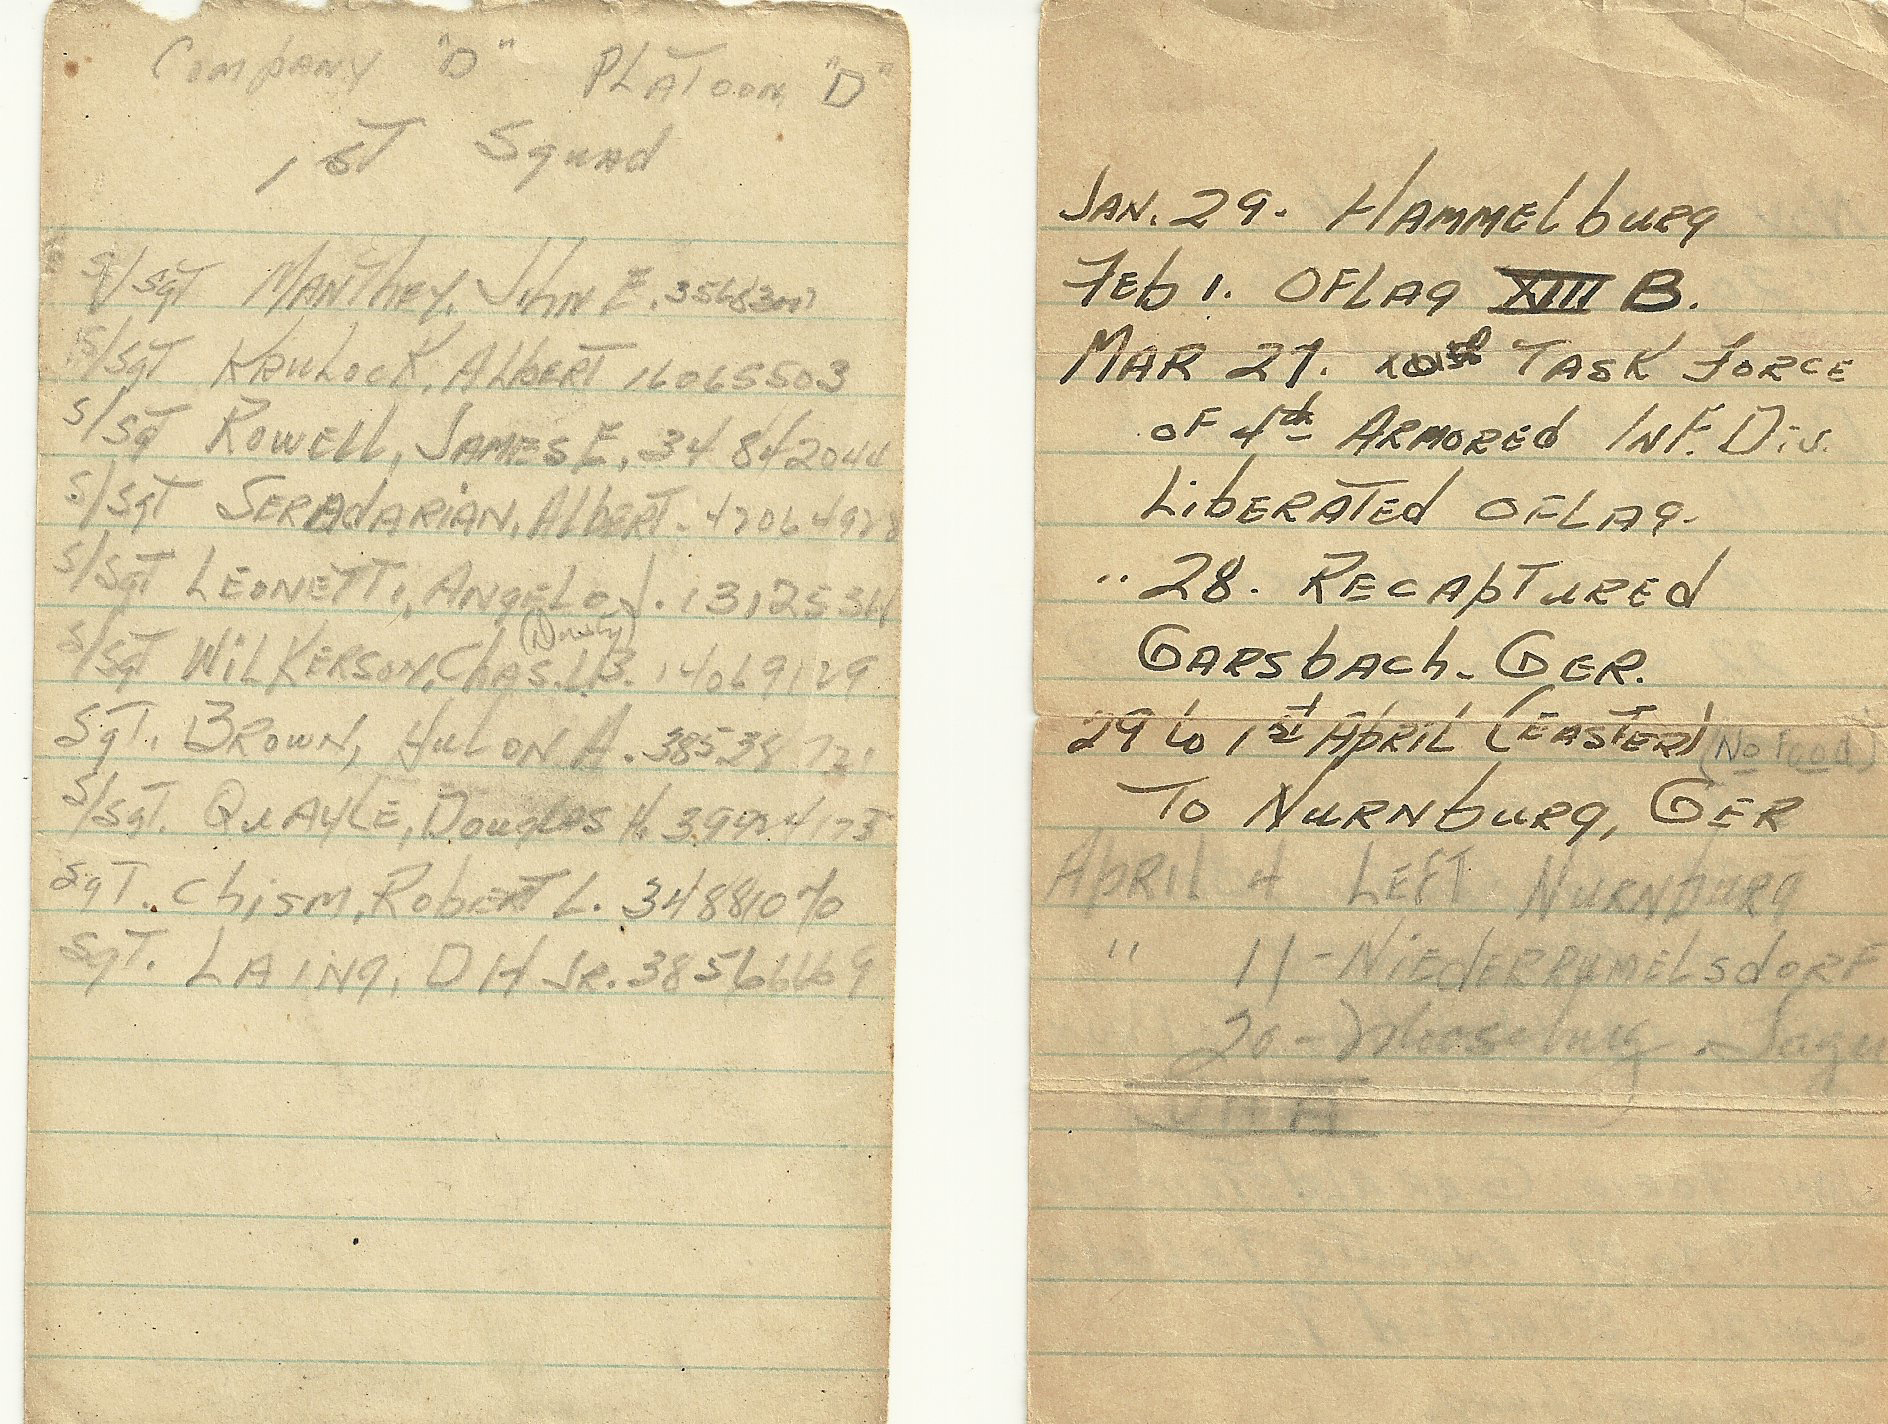 Company "D" Platoon "D"
1st Squad
S/Sgt Manthey, John E.
S/Sgt Krulock, Albert 16065503
S/Sgt Rowell, James E. 34842044
S/Sgt Seradarian, Albert - 42064928
S/Sgt Leonetti, Angelo J. 
S/Sgt Wilkerson, Chas. (Dusty) 14069129
Sgt. Brown, Hulon A.
S/Sgt. Quayle, Douglas H.
Sgt. Chism, Robert L. 34881070
Sgt. Laing, D H Jr. 38566669
Jan. 29. Hammelburg
Feb 1. Oflag XIII B.
Mar 27. Task Force
of 4th Armored Inf. Div.
Liberated Oflag.
" 28. Recaptured
Garsbach - Ger.
29 to 1st April (Easter) (No Food)
To Nurnburg, Ger
April 4 Left Nurnburg
" 11 - Niederrumelsdorf
20 -